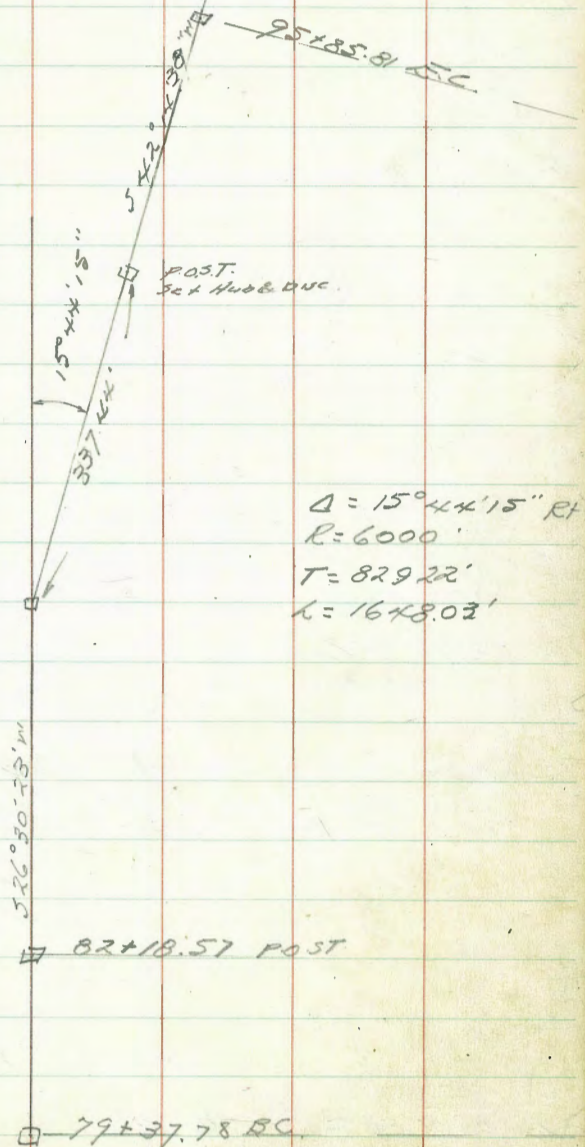 95+85.81 E.C
S 42° 14'38"W
P.O.S.T.
Set Hub &
15°44'15"
337.44'
Δ = 15°44'15" Rt
R=6000'
T=829.22'
L=1648.03'
S26°30'23"W
82+18.57 POST
79+37.78 BC